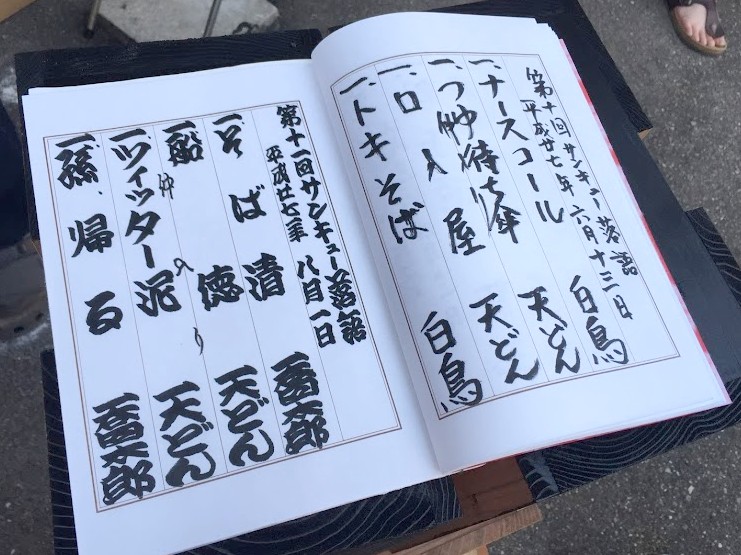 第十回サンキュー落語
平成廿七年 六月十三日
一、ナースコール 白鳥
一、待ち傘 天どん
一、口入屋 天どん
一、トキそば 白鳥
第十一回サンキュー落語
平成廿七年 八月一日
一、そば清 喬太郎
一、船徳 天どん
仲入り
一、ツィッター泥 天どん
一、孫、帰る 喬太郎